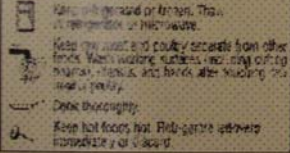 Keep refrigerated or frozen. Thaw
in refrigerator or microwave.
Keep raw meat and poultry separate from other
foods. Wash working surfaces (including cutting
boards), utensils, and hands after touching raw
meat or poultry.
Cook thoroughly.
Keep hot foods hot. Refrigerate leftovers
immediately or discard.